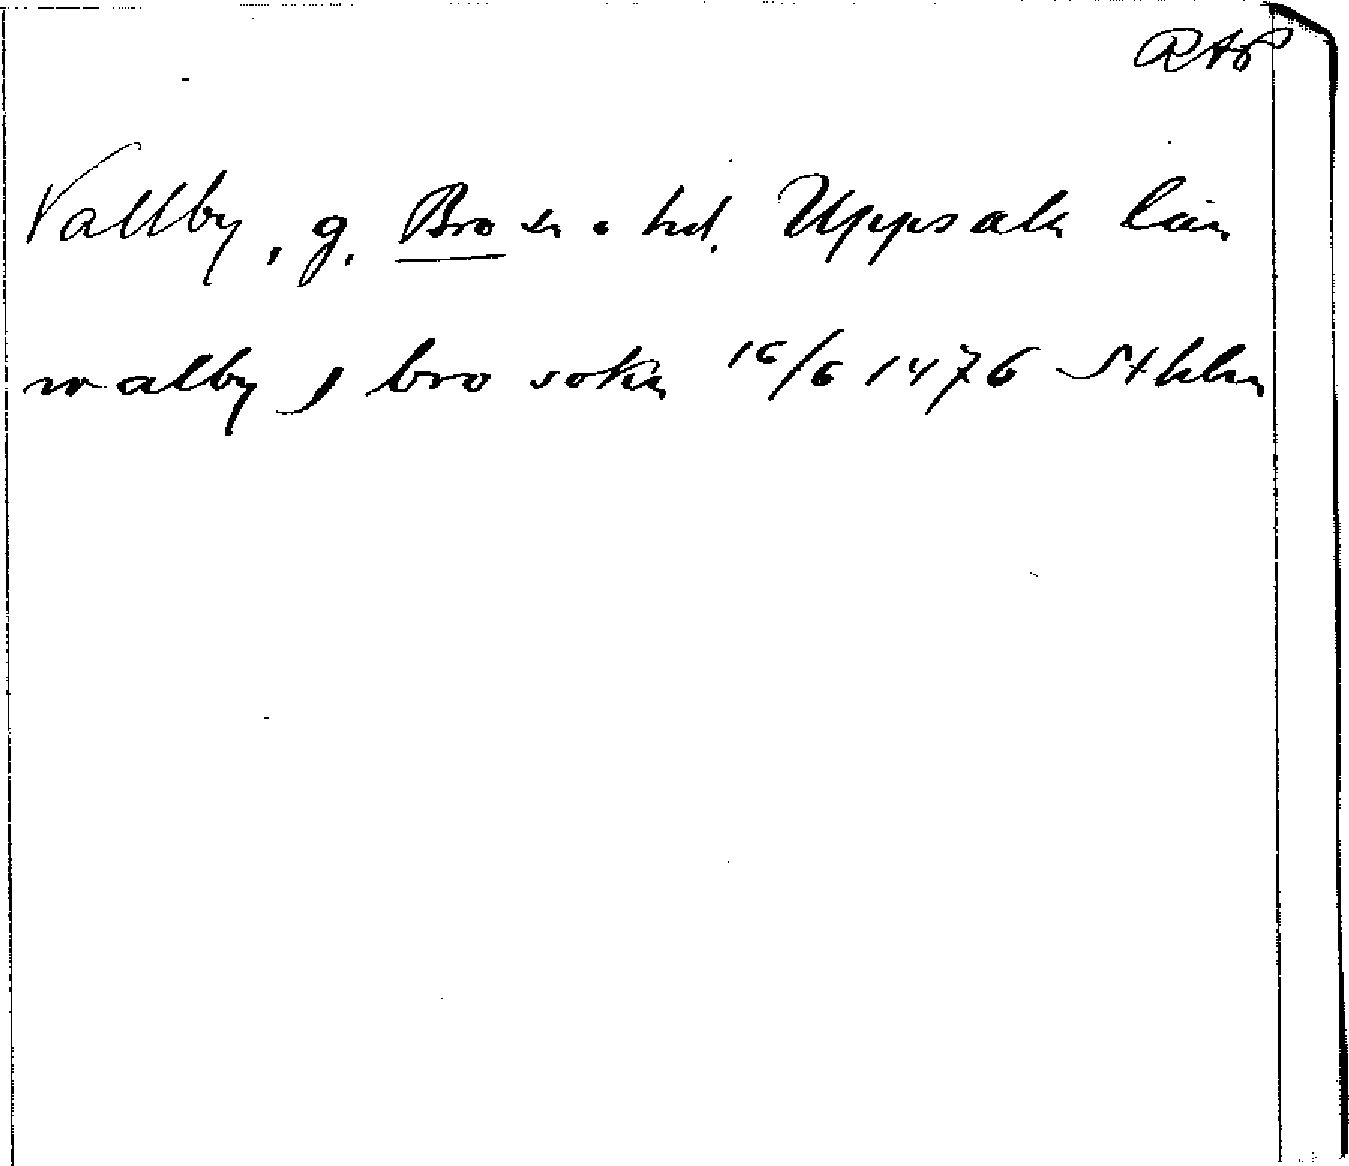 RAP
Vallby, g. Bro sn o hd. Uppsala län
walby j bro sokn 16/6 1476 Sthlm